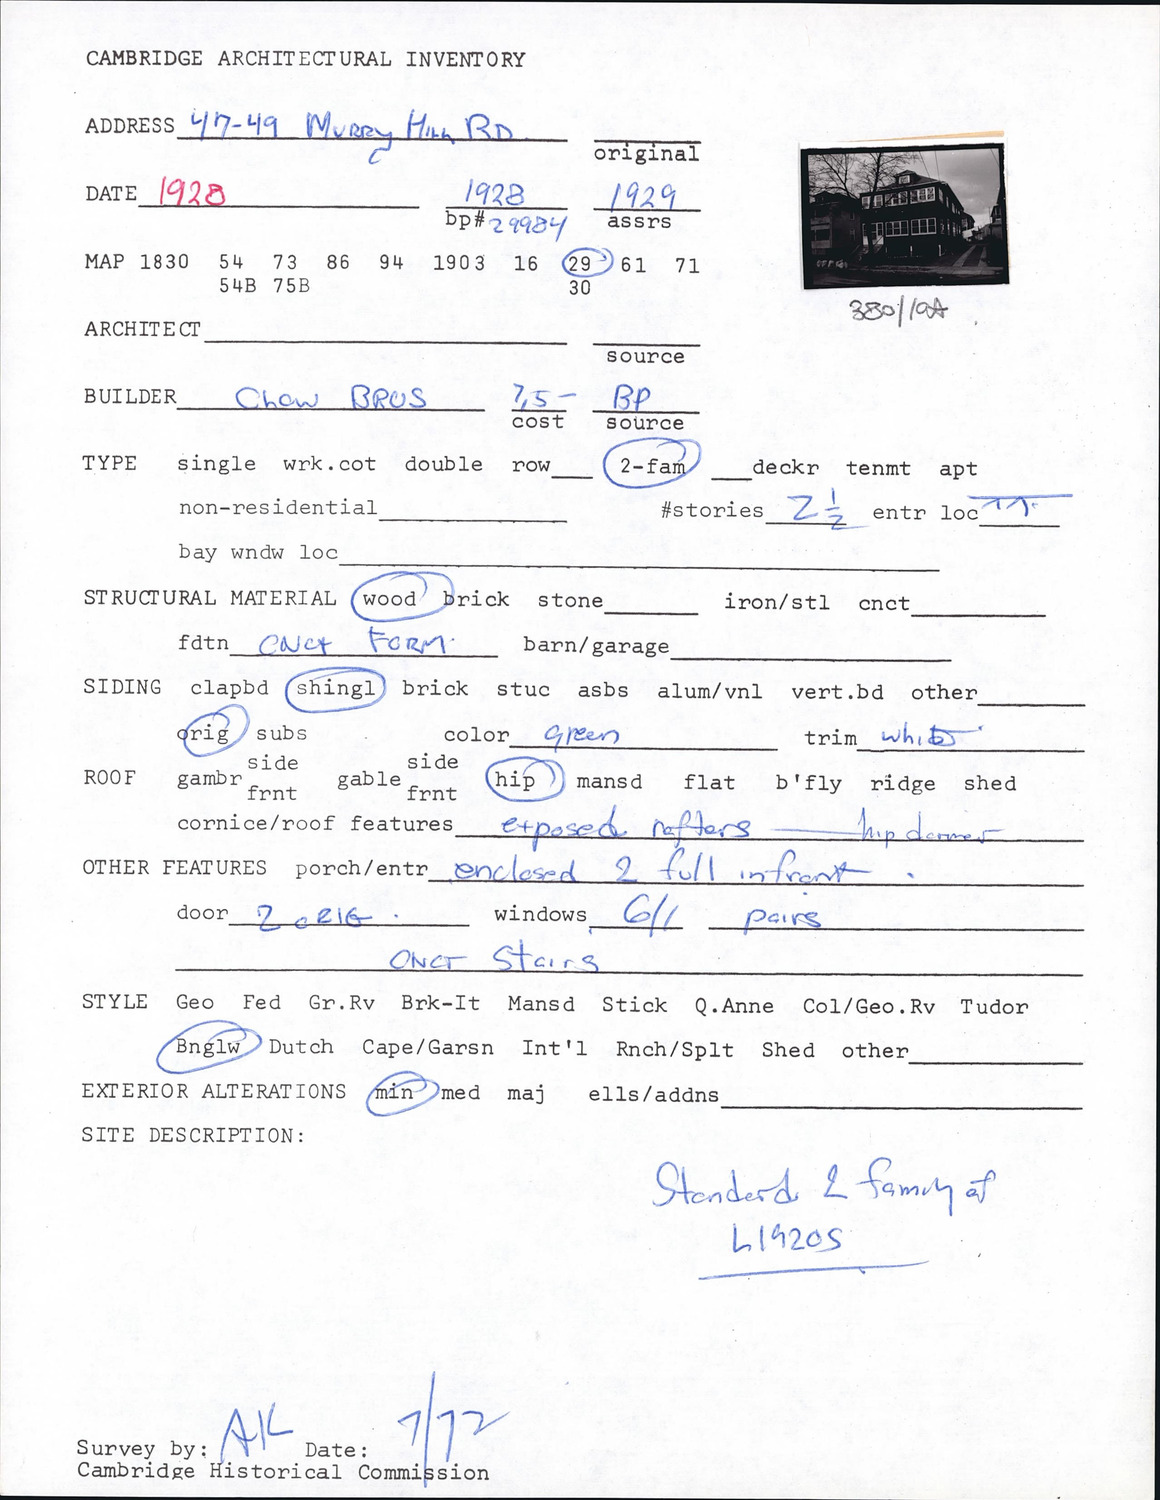 CAMBRIDGE ARCHITECTURAL INVENTORY
ADDRESS 47-49 Murry Hill RD
original
DATE 1928 1928 1929
bp# 29984 assrs
MAP 1830 54 73 86 94 1903 16 29 61 71
54B 75B 30
380/19A
ARCHITECT
source
BUILDER Chow BROS 7,5- BP
cost source
TYPE single wrk.cot double row 2-fam deckr tenmt apt
non-residential #stories 2 1/2 entr loc
bay wndw loc
STRUCTURAL MATERIAL wood brick stone iron/stl cnct
fdtn CNCT FORM. barn/garage
SIDING clapbd shingl brick stuc asbs alum/vnl vert.bd other
orig subs color green trim white
side side
ROOF gambr gable hip mansd flat b'fly ridge shed
frnt frnt
cornice/roof features exposed rafters — hip dormer
OTHER FEATURES porch/entr enclosed 2 full in front .
door 2 ORIG . windows 6/1 pairs
CNCT Stairs
STYLE Geo Fed Gr.Rv Brk-It Mansd Stick Q.Anne Col/Geo.Rv Tudor
Bnglw Dutch Cape/Garsn Int'l Rnch/Splt Shed other
EXTERIOR ALTERATIONS min med maj ells/addns
SITE DESCRIPTION:
Standard 2 family of
L1920S
Survey by: AK Date: 7/72
Cambridge Historical Commission